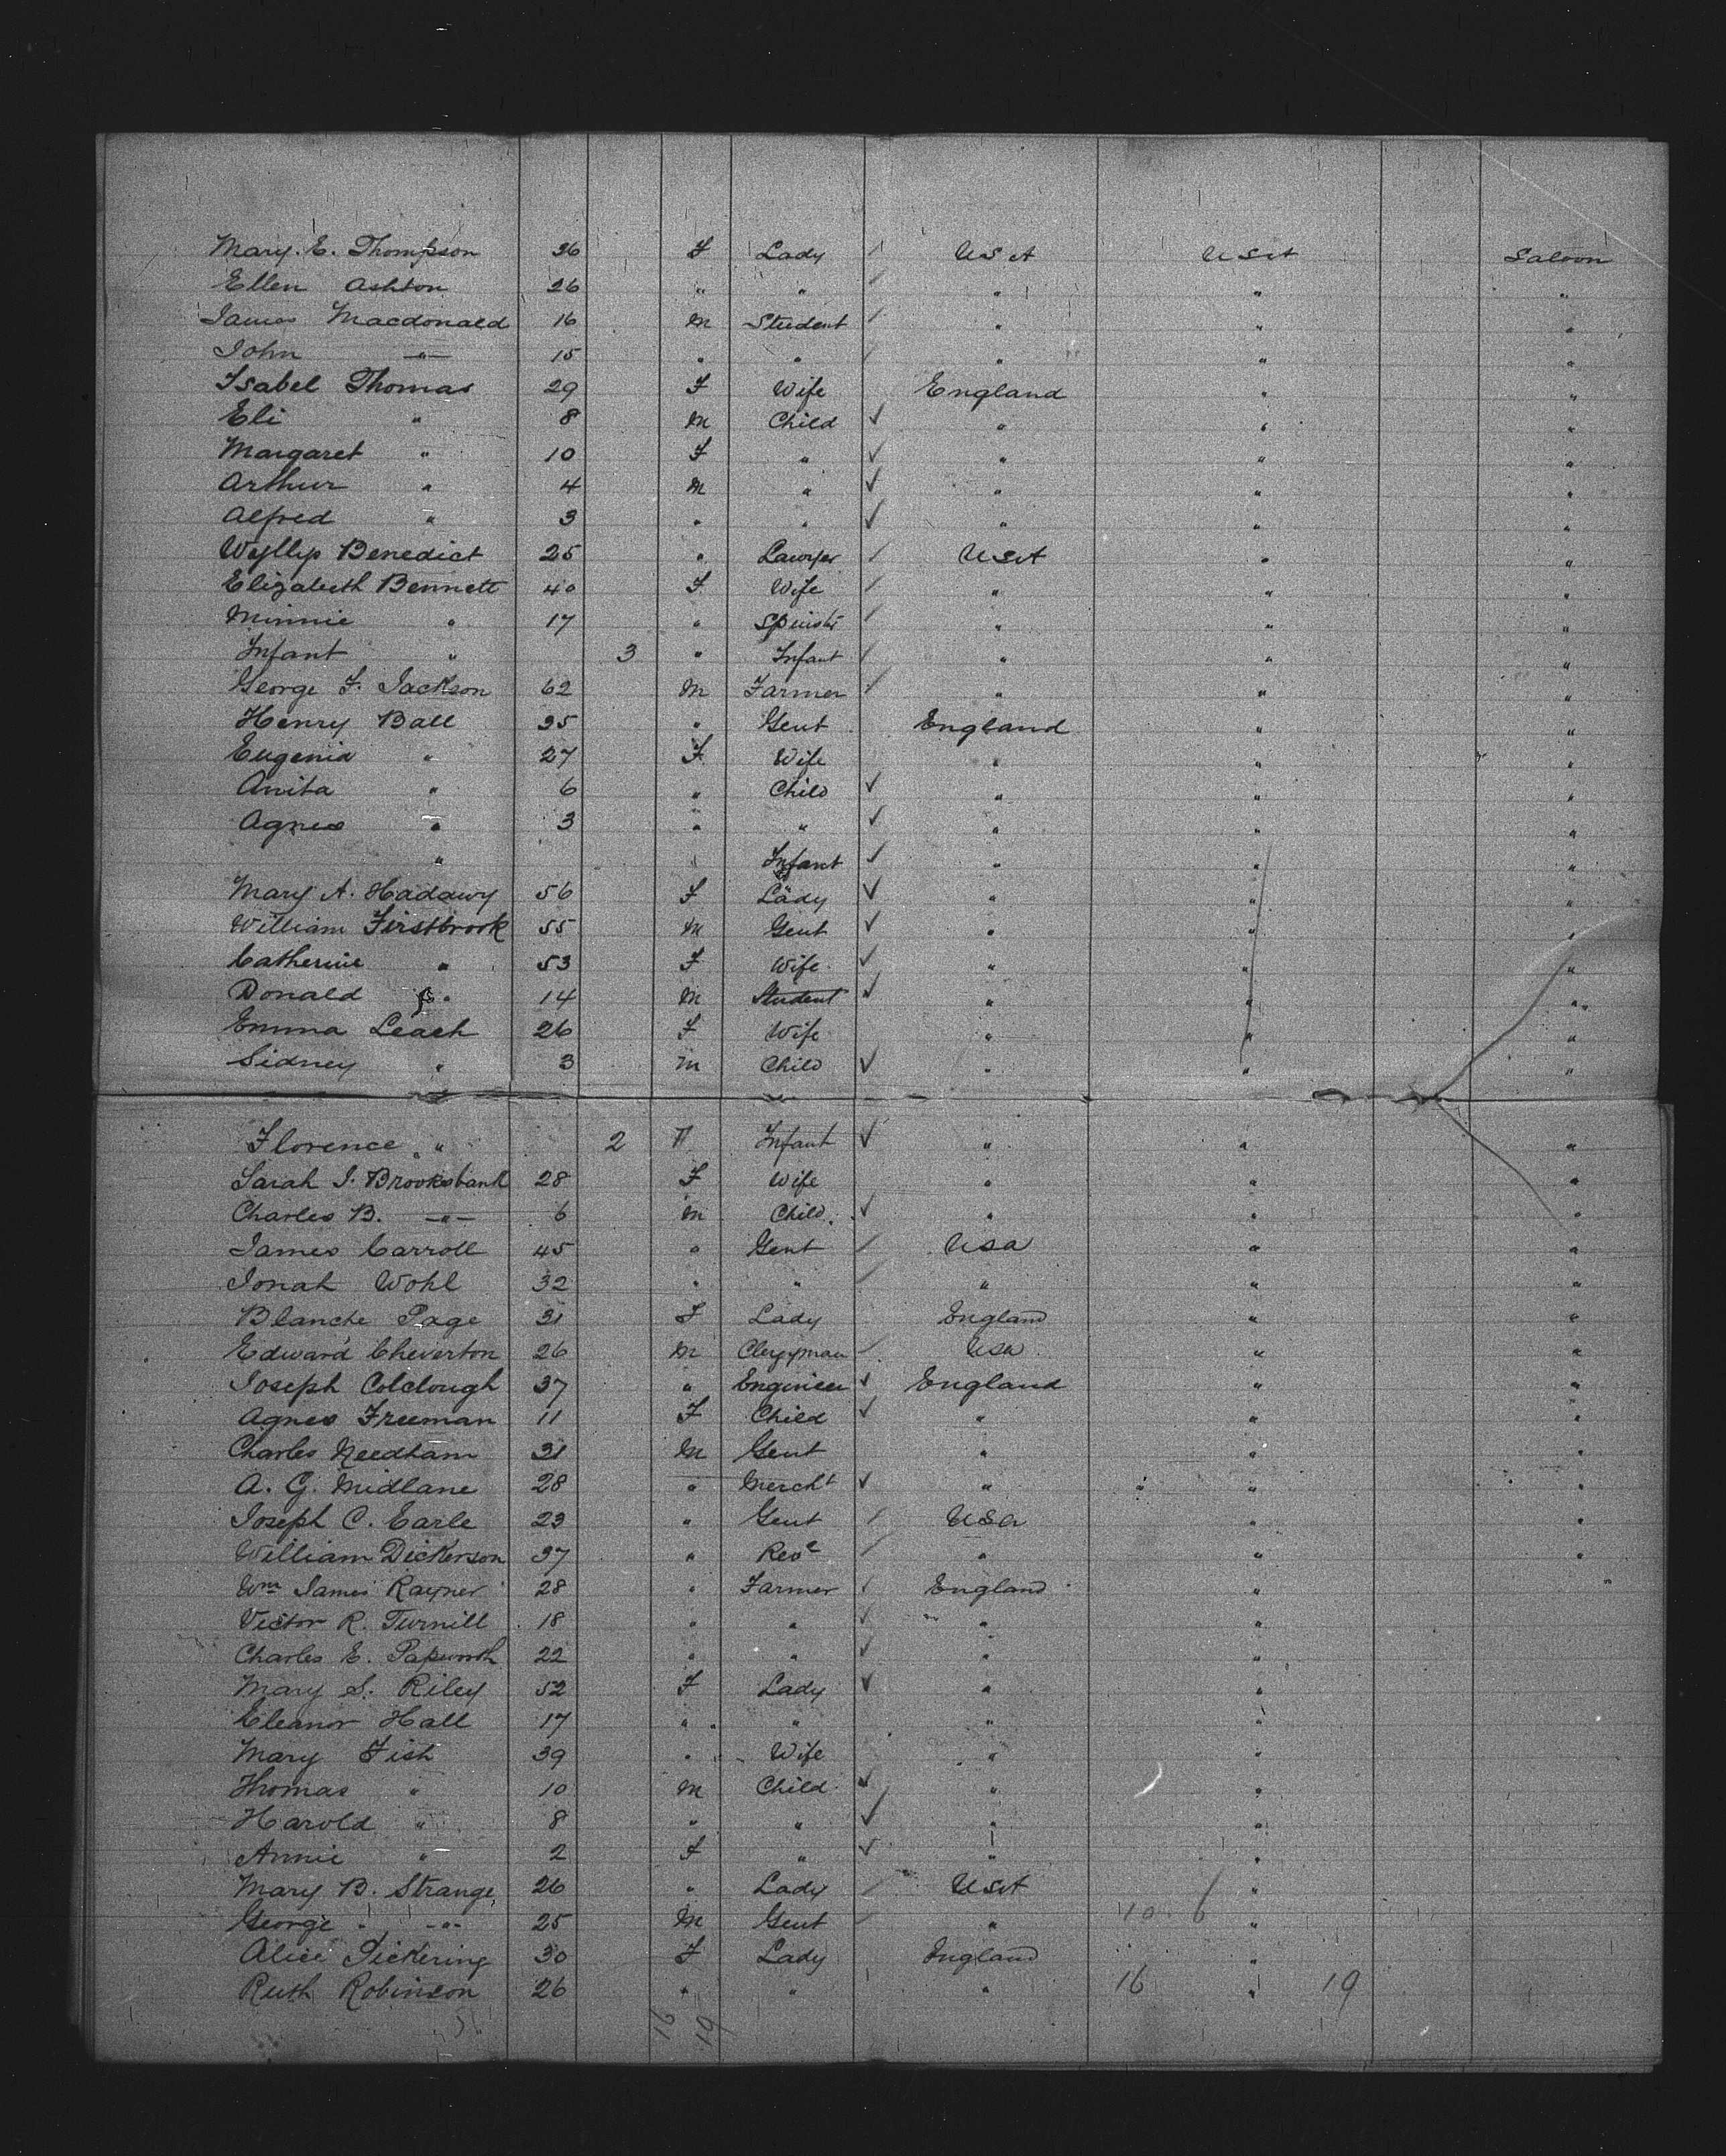 Mary. E. Thompson 36 F Lady / USA USA Saloon
Ellen Ashton 26 " " / " " "
James Macdonald 16 M Student / " " "
John —"— 15 " " / " " "
Isabel Thomas 29 F Wife England " "
Eli " 8 M Child ✓ " " "
Margaret " 10 F " ✓ " " "
Arthur " 4 M " ✓ " " "
Alfred " 3 " " ✓ " " "
Wyllys Benedict 25 " Lawyer / USA " "
Elizabeth Bennett 40 F Wife / " " "
Minnie " 17 " Spinstr / " " "
Infant " 3 " Infant / " " "
George F. Jackson 62 M Farmer / " " "
Henry Ball 35 " Gent England " "
Eugenia " 27 F Wife " " "
Anita " 6 " Child ✓ " " "
Agnes " 3 " " ✓ " " "
" " Infant ✓ " " "
Mary A. Hadawy 56 F Lady ✓ " " "
William Firstbrook 55 M Gent ✓ " " "
Catherine " 53 F Wife ✓ " " "
Donald " 14 M Student ✓ " " "
Emma Leach 26 F Wife " " "
Sidney " 3 M Child ✓ " " "
Florence " 2 " Infant ✓ " " "
Sarah J. Brooksbank 28 F Wife " " "
Charles B. —"— 6 M Child ✓ " " "
James Carroll 45 " Gent / USA " "
Jonah Wohl 32 " " / " " "
Blanche Page 31 F Lady England " "
Edward Cheverton 26 M Clergyman / USA " "
Joseph Colclough 37 " Engineer ✓ England " "
Agnes Freeman 11 F Child ✓ " " "
Charles Needham 31 M Gent " " "
A. G. Midlane 28 " Mercht ✓ " " "
Joseph C. Earle 23 " Gent / USA " "
William Dickerson 37 " Revd / " " "
Wm James Rayner 28 " Farmer ✓ England " "
Victor R. Turnill 18 " " ✓ " "
Charles E. Papworth 22 " " ✓ " "
Mary S. Riley 52 F Lady ✓ " "
Eleanor Hall 17 " " " "
Mary Fish 39 " Wife " "
Thomas " 10 M Child ✓ " "
Harold " 8 " " ✓ " "
Annie " 2 F " ✓ " "
Mary B. Strange 26 " Lady / USA "
George " 25 M Gent / " 10 6 "
Alice Pickering 30 F Lady England "
Ruth Robinson 26 " " " 16 " 19
16 19